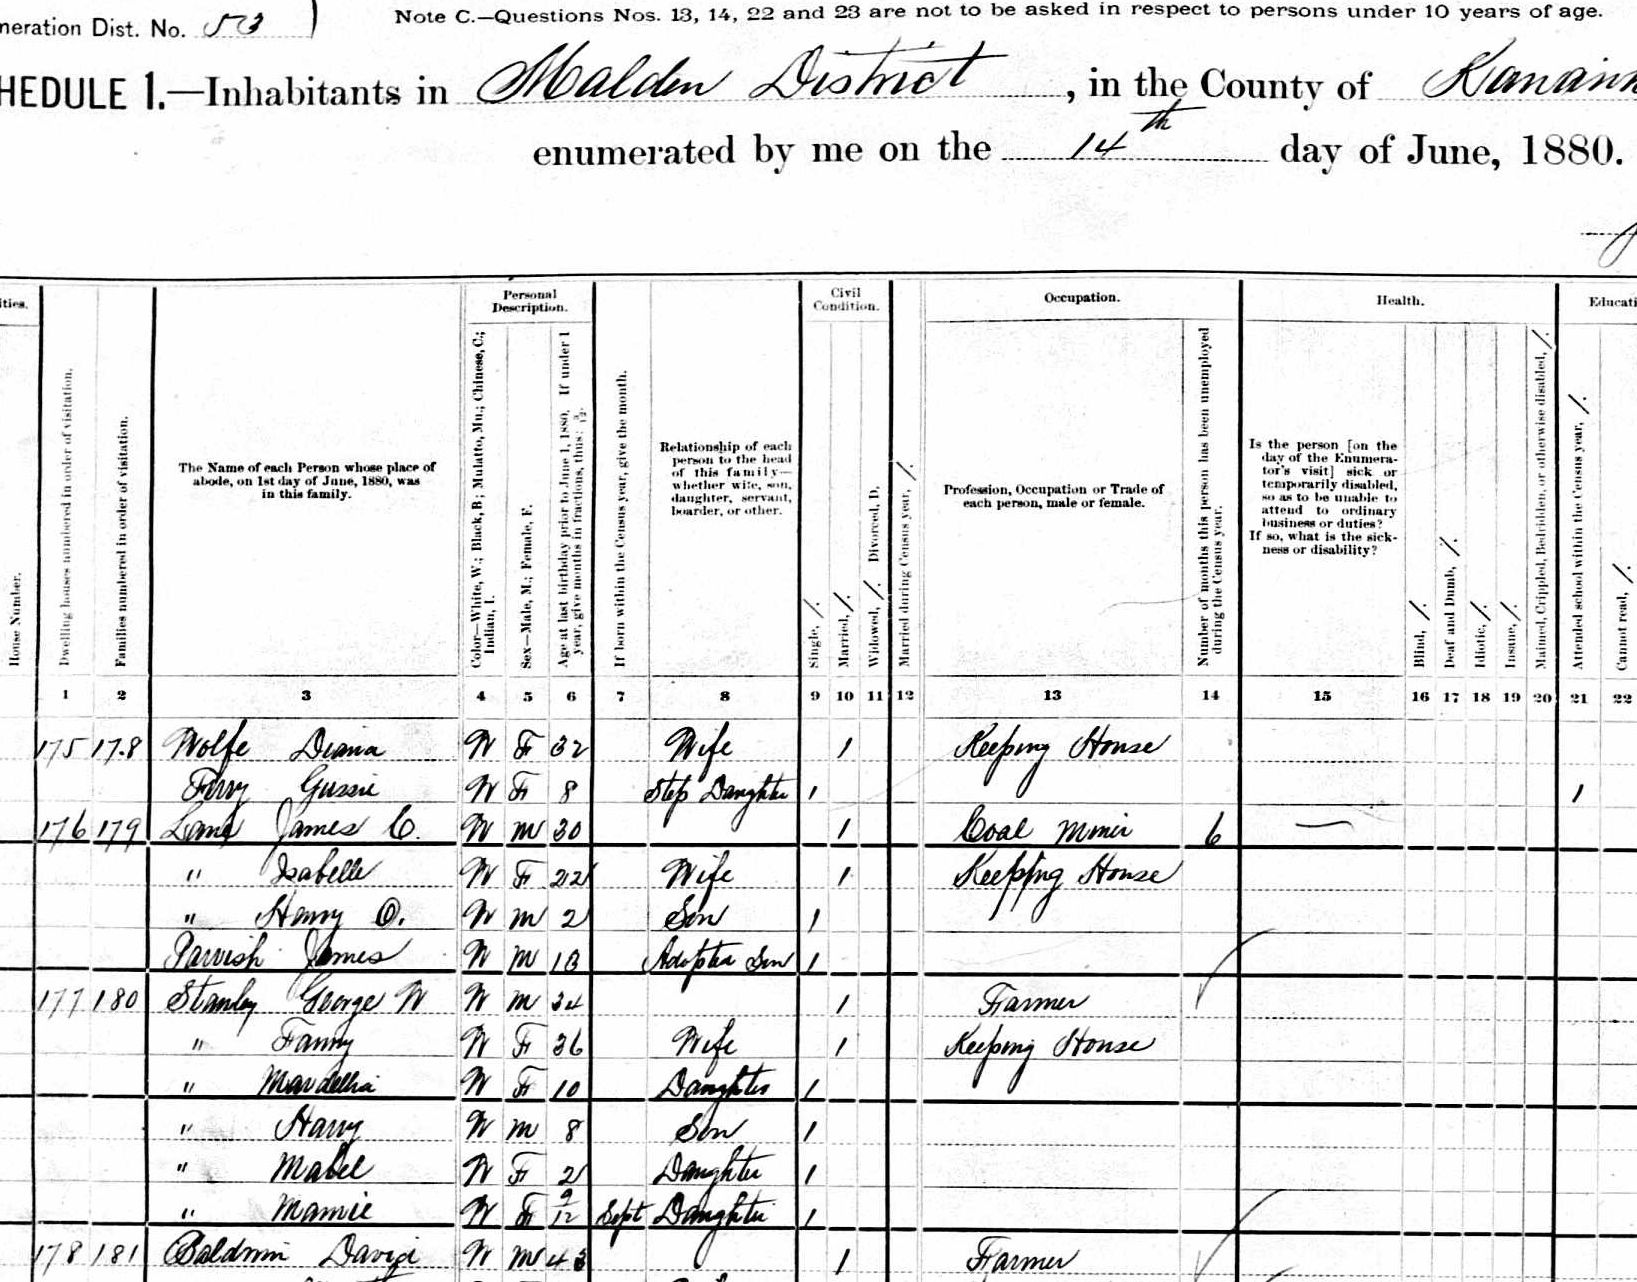 neration Dist. No. 53
Note C.—Questions Nos. 13, 14, 22 and 23 are not to be asked in respect to persons under 10 years of age.
HEDULE 1.—Inhabitants in Malden District, in the County of Kanawh
enumerated by me on the 14th day of June, 1880.
ities. Personal Description. Civil Condition. Occupation. Health. Educati
House Number.
Dwelling houses numbered in order of visitation.
Families numbered in order of visitation.
The Name of each Person whose place of abode, on 1st day of June, 1880, was in this family.
Color—White, W.; Black, B.; Mulatto, Mu.; Chinese, C.; Indian, I.
Sex—Male, M.; Female, F.
Age at last birthday prior to June 1, 1880. If under 1 year, give months in fractions, thus: 3/12.
If born within the Census year, give the month.
Relationship of each person to the head of this family—whether wife, son, daughter, servant, boarder, or other.
Single, /.
Married, /.
Widowed, /. Divorced, D.
Married during Census year, /.
Profession, Occupation or Trade of each person, male or female.
Number of months this person has been unemployed during the Census year.
Is the person [on the day of the Enumerator's visit] sick or temporarily disabled, so as to be unable to attend to ordinary business or duties? If so, what is the sickness or disability?
Blind, /.
Deaf and Dumb, /.
Idiotic, /.
Insane, /.
Maimed, Crippled, Bedridden, or otherwise disabled, /.
Attended school within the Census year, /.
Cannot read, /.
1 2 3 4 5 6 7 8 9 10 11 12 13 14 15 16 17 18 19 20 21 22
175 178 Wolfe Diana W F 32 Wife / Keeping House
Gussie W F 8 Step Daughter / /
176 179 Lane James C. W M 30 / Coal Miner 6 —
" Isabelle W F 22 Wife / Keeping House
" Henry O. W M 2 Son /
Parrish James W M 13 Adopted Son /
177 180 Stanley George W W M 34 / Farmer
" Fanny W F 36 Wife / Keeping House
" W F 10 Daughter /
" Harry W M 8 Son /
" Mabel W F 2 Daughter /
" Mamie W F 9/12 Sept Daughter /
178 181 Baldwin David W M 43 / Farmer